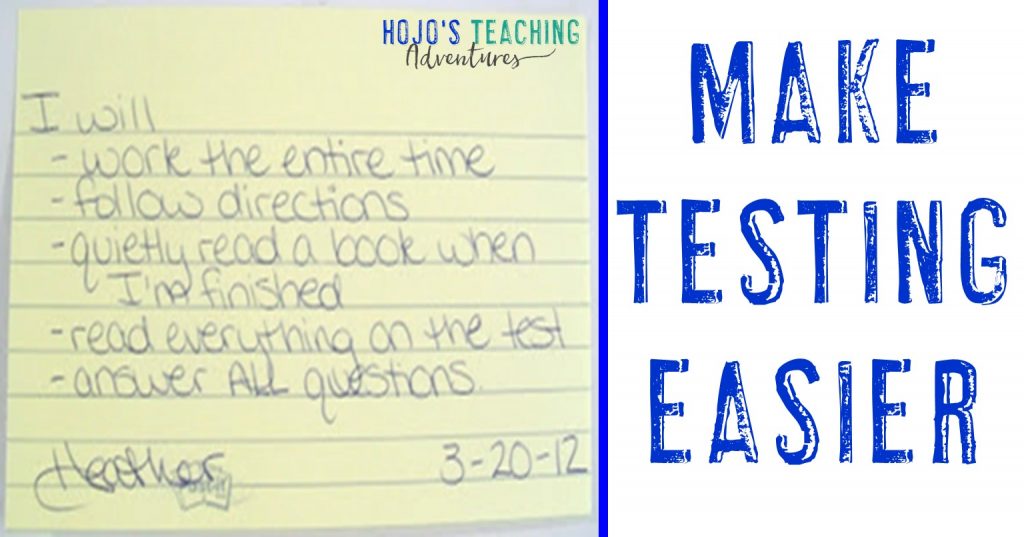 HOJO'S TEACHING
Adventures
I will
- work the entire time
- follow directions
- quietly read a book when
I'm finished
- read everything on the test
- answer ALL questions.
Heather
3-20-12
MAKE
TESTING
EASIER